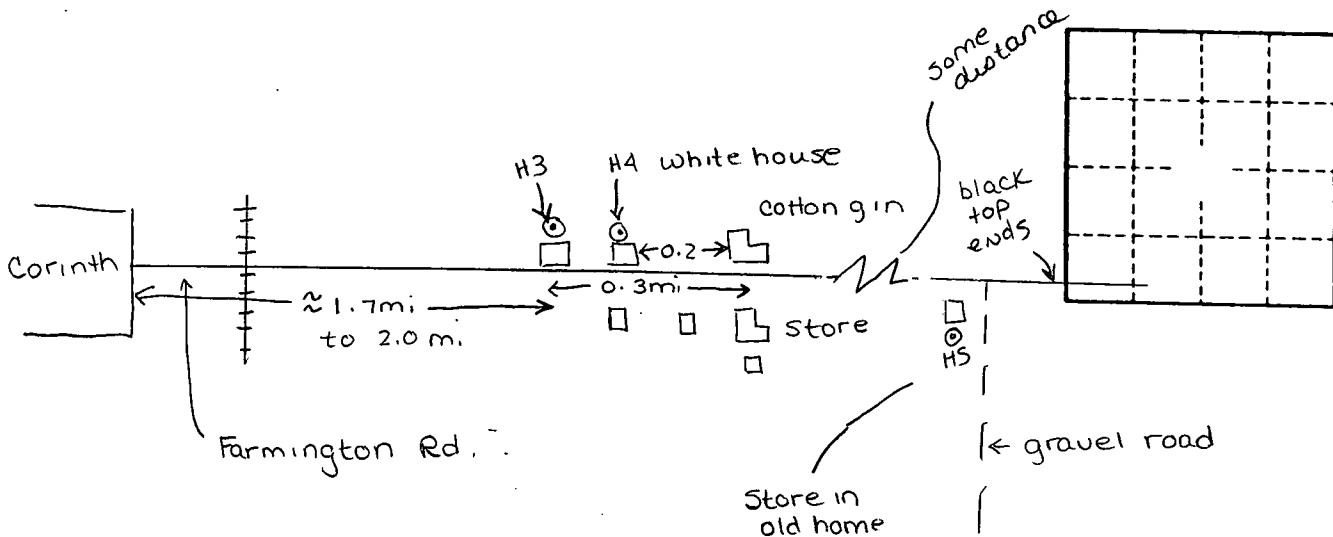 some
distance
H3
H4 white house
cotton gin
black
top
ends
0.2
Corinth
0.3mi
≈ 1.7mi
to 2.0 mi.
Store
H5
Farmington Rd.
gravel road
Store in
old home